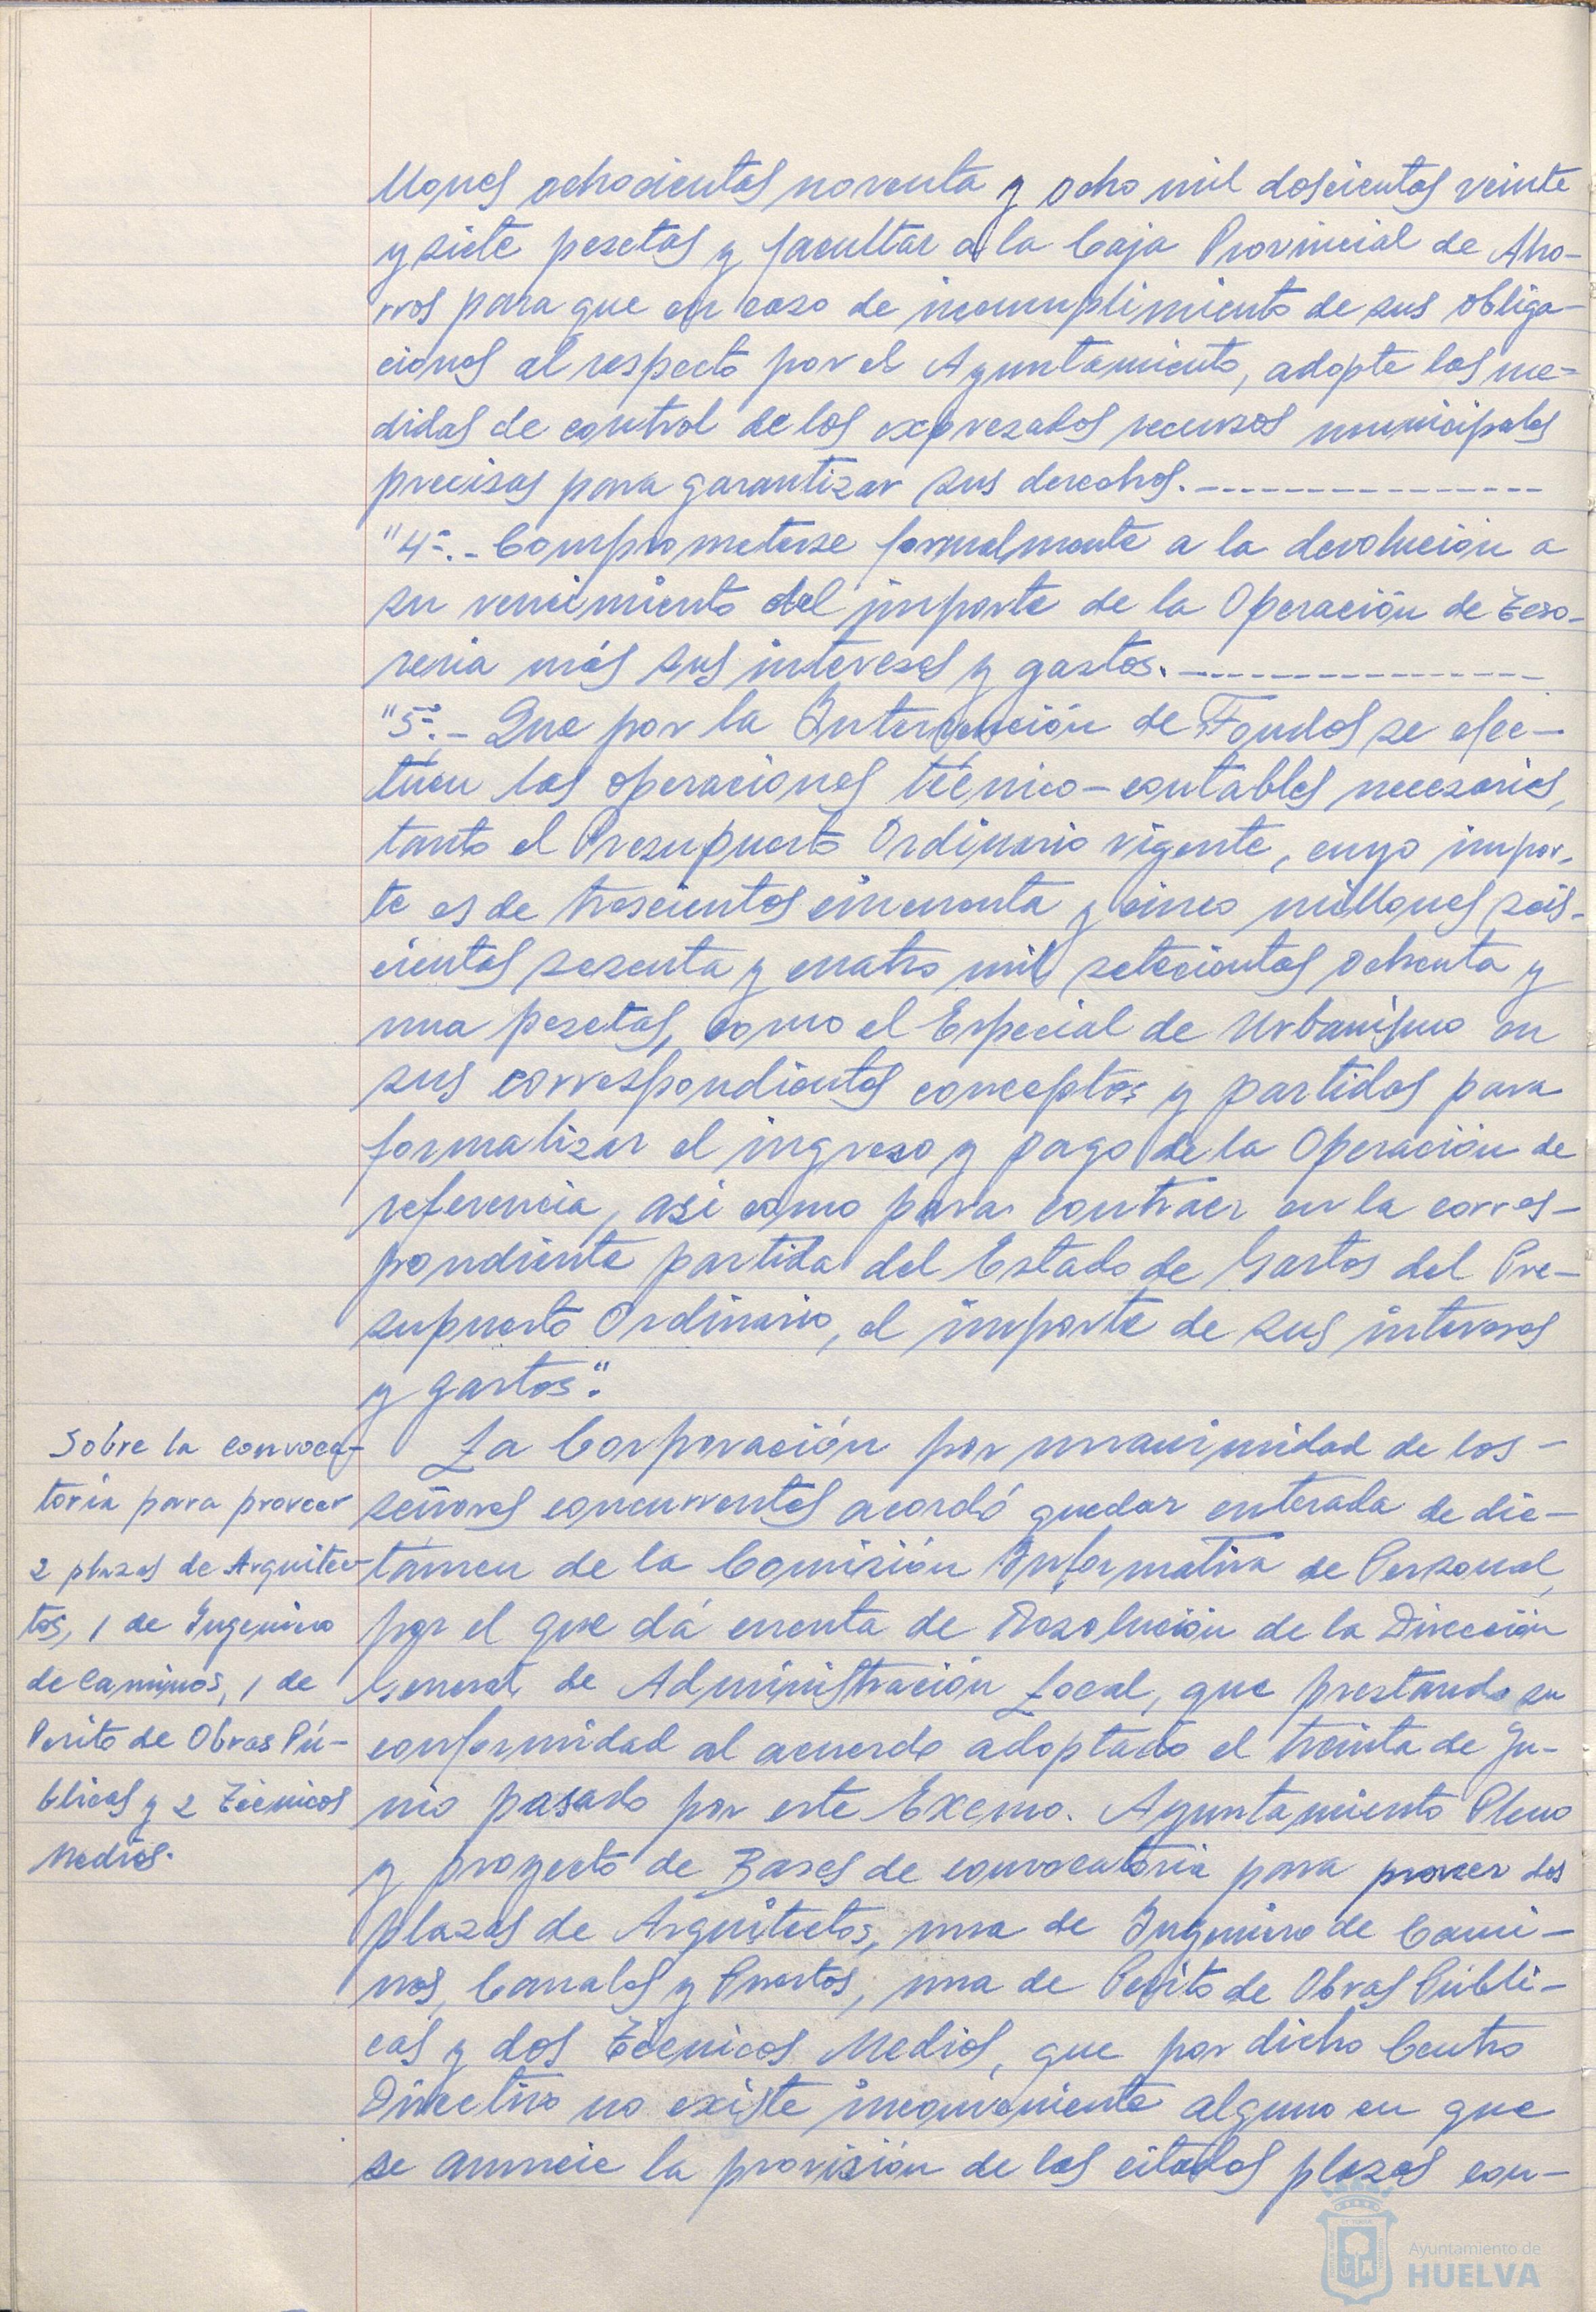 llones ochocientas noventa y ocho mil doscientas veinte
y siete pesetas y facultar a la Caja Provincial de Aho-
rros para que en caso de incumplimiento de sus obliga-
ciones al respecto por el Ayuntamiento, adopte las me-
didas de control de los expresados recursos municipales
precisas para garantizar sus derechos.
"4º.- Comprometerse formalmente a la devolución a
su vencimiento del importe de la Operación de Teso-
reria más sus intereses y gastos.
"5º.- Que por la Intervención de Fondos se efec-
túen las operaciones técnico-contables necesarias,
tanto el Presupuesto Ordinario vigente, cuyo impor-
te es de trescientos cincuenta y cinco millones seis-
cientas sesenta y cuatro mil setecientas ochenta y
una pesetas, como el Especial de Urbanismo en
sus correspondientes conceptos y partidas para
formalizar el ingreso y pago de la Operación de
referencia, asi como para contraer en la corres-
pondiente partida del Estado de Gastos del Pre-
supuesto Ordinario, el importe de sus intereses
y gastos".
Sobre la convoca-
toria para proveer
2 plazas de Arquitec-
tos, 1 de Ingeniero
de Caminos, 1 de
Perito de Obras Pú-
blicas y 2 Técnicos
Medios.
La Corporación por unanimidad de los-
señores concurrentes acordó quedar enterada de dic-
támen de la Comisión Informativa de Personal,
por el que dá cuenta de Resolución de la Dirección
General de Administración Local, que prestando su
conformidad al acuerdo adoptado el treinta de Ju-
nio pasado por este Excmo. Ayuntamiento Pleno
y proyecto de Bases de convocatoria para proveer dos
plazas de Arquitectos, una de Ingeniero de Cami-
nos, Canales y Puertos, una de Perito de Obras Públi-
cas y dos Técnicos Medios, que por dicho Centro
Directivo no existe inconveniente alguno en que
se anuncie la provisión de las citadas plazas con-
Ayuntamiento de
HUELVA